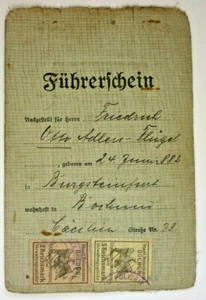 Führerschein
Ausgestellt für Herrn Friedrich
Otto Adler-Flügel
geboren am 24. Juni 1882
in Burgsteinfurt
wohnhaft in Bochum
Straße No. 23